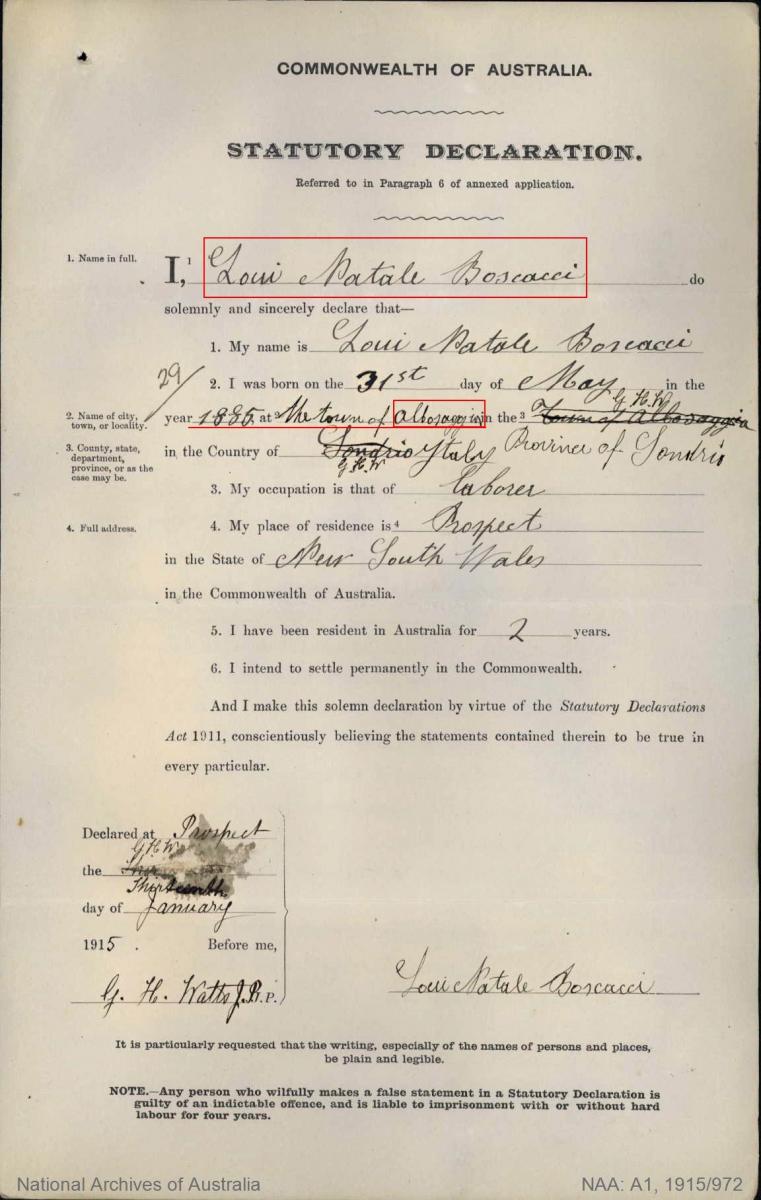 COMMONWEALTH OF AUSTRALIA.
STATUTORY DECLARATION.
Referred to in Paragraph 6 of annexed application.
1. Name in full.
I,¹ Loui Natale Boscacci do
solemnly and sincerely declare that—
1. My name is Loui Natale Boscacci
29/
2. I was born on the 31st day of May in the
G. H. W
2. Name of city, town, or locality.
year 1885, at ² the town of Albosaggia in the ³ Town of Albosaggia
3. County, state, department, province, or as the case may be.
in the Country of Sondrio Italy Province of Sondrio
G. H. W
3. My occupation is that of laborer
4. Full address.
4. My place of residence is ⁴ Prospect
in the State of New South Wales
in the Commonwealth of Australia.
5. I have been resident in Australia for 2 years.
6. I intend to settle permanently in the Commonwealth.
And I make this solemn declaration by virtue of the Statutory Declarations
Act 1911, conscientiously believing the statements contained therein to be true in
every particular.
Declared at Prospect
G. H. W
the
Thirteenth
day of January
1915. Before me,
G. H. Watts J.P.
Loui Natale Boscacci
It is particularly requested that the writing, especially of the names of persons and places,
be plain and legible.
NOTE.—Any person who wilfully makes a false statement in a Statutory Declaration is
guilty of an indictable offence, and is liable to imprisonment with or without hard
labour for four years.
National Archives of Australia
NAA: A1, 1915/972